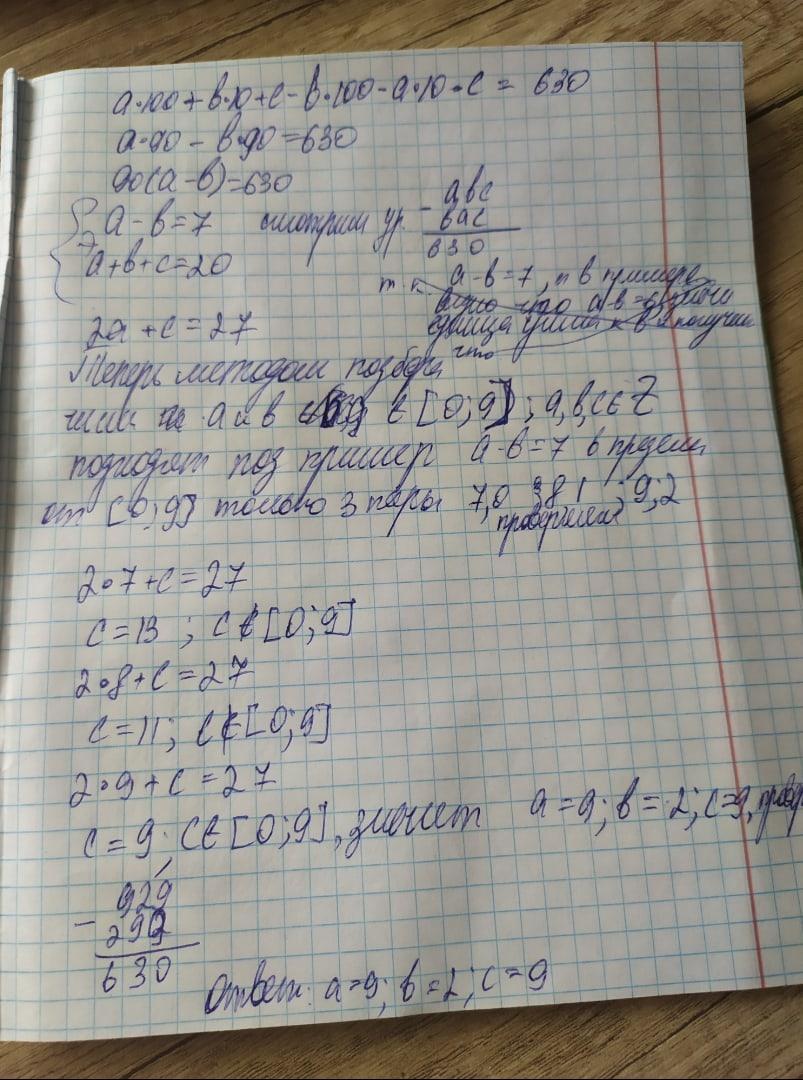 a·100+b·10+c-b·100-a·10-c = 630
a·90 - b·90 = 630
90(a-b)=630
a-b=7 смотрим ур. - abc
bac
630
a+b+c=20
т.к. a-b=7, в примере
2a+c=27
Теперь методом подбора
a и b ∈ [0;9]; a,b,c∈Z
подходят под пример a-b=7 в пределах
от [0;9] только 3 пары 7,0 8 1 ; 9;2
проверяем
2·7+c=27
c=13 ; c∉[0;9]
2·8+c=27
c=11; c∉[0;9]
2·9+c=27
c=9; c∈[0;9], значит a=9; b=2; c=9,
- 929
299
630
Ответ: a=9; b=2; c=9